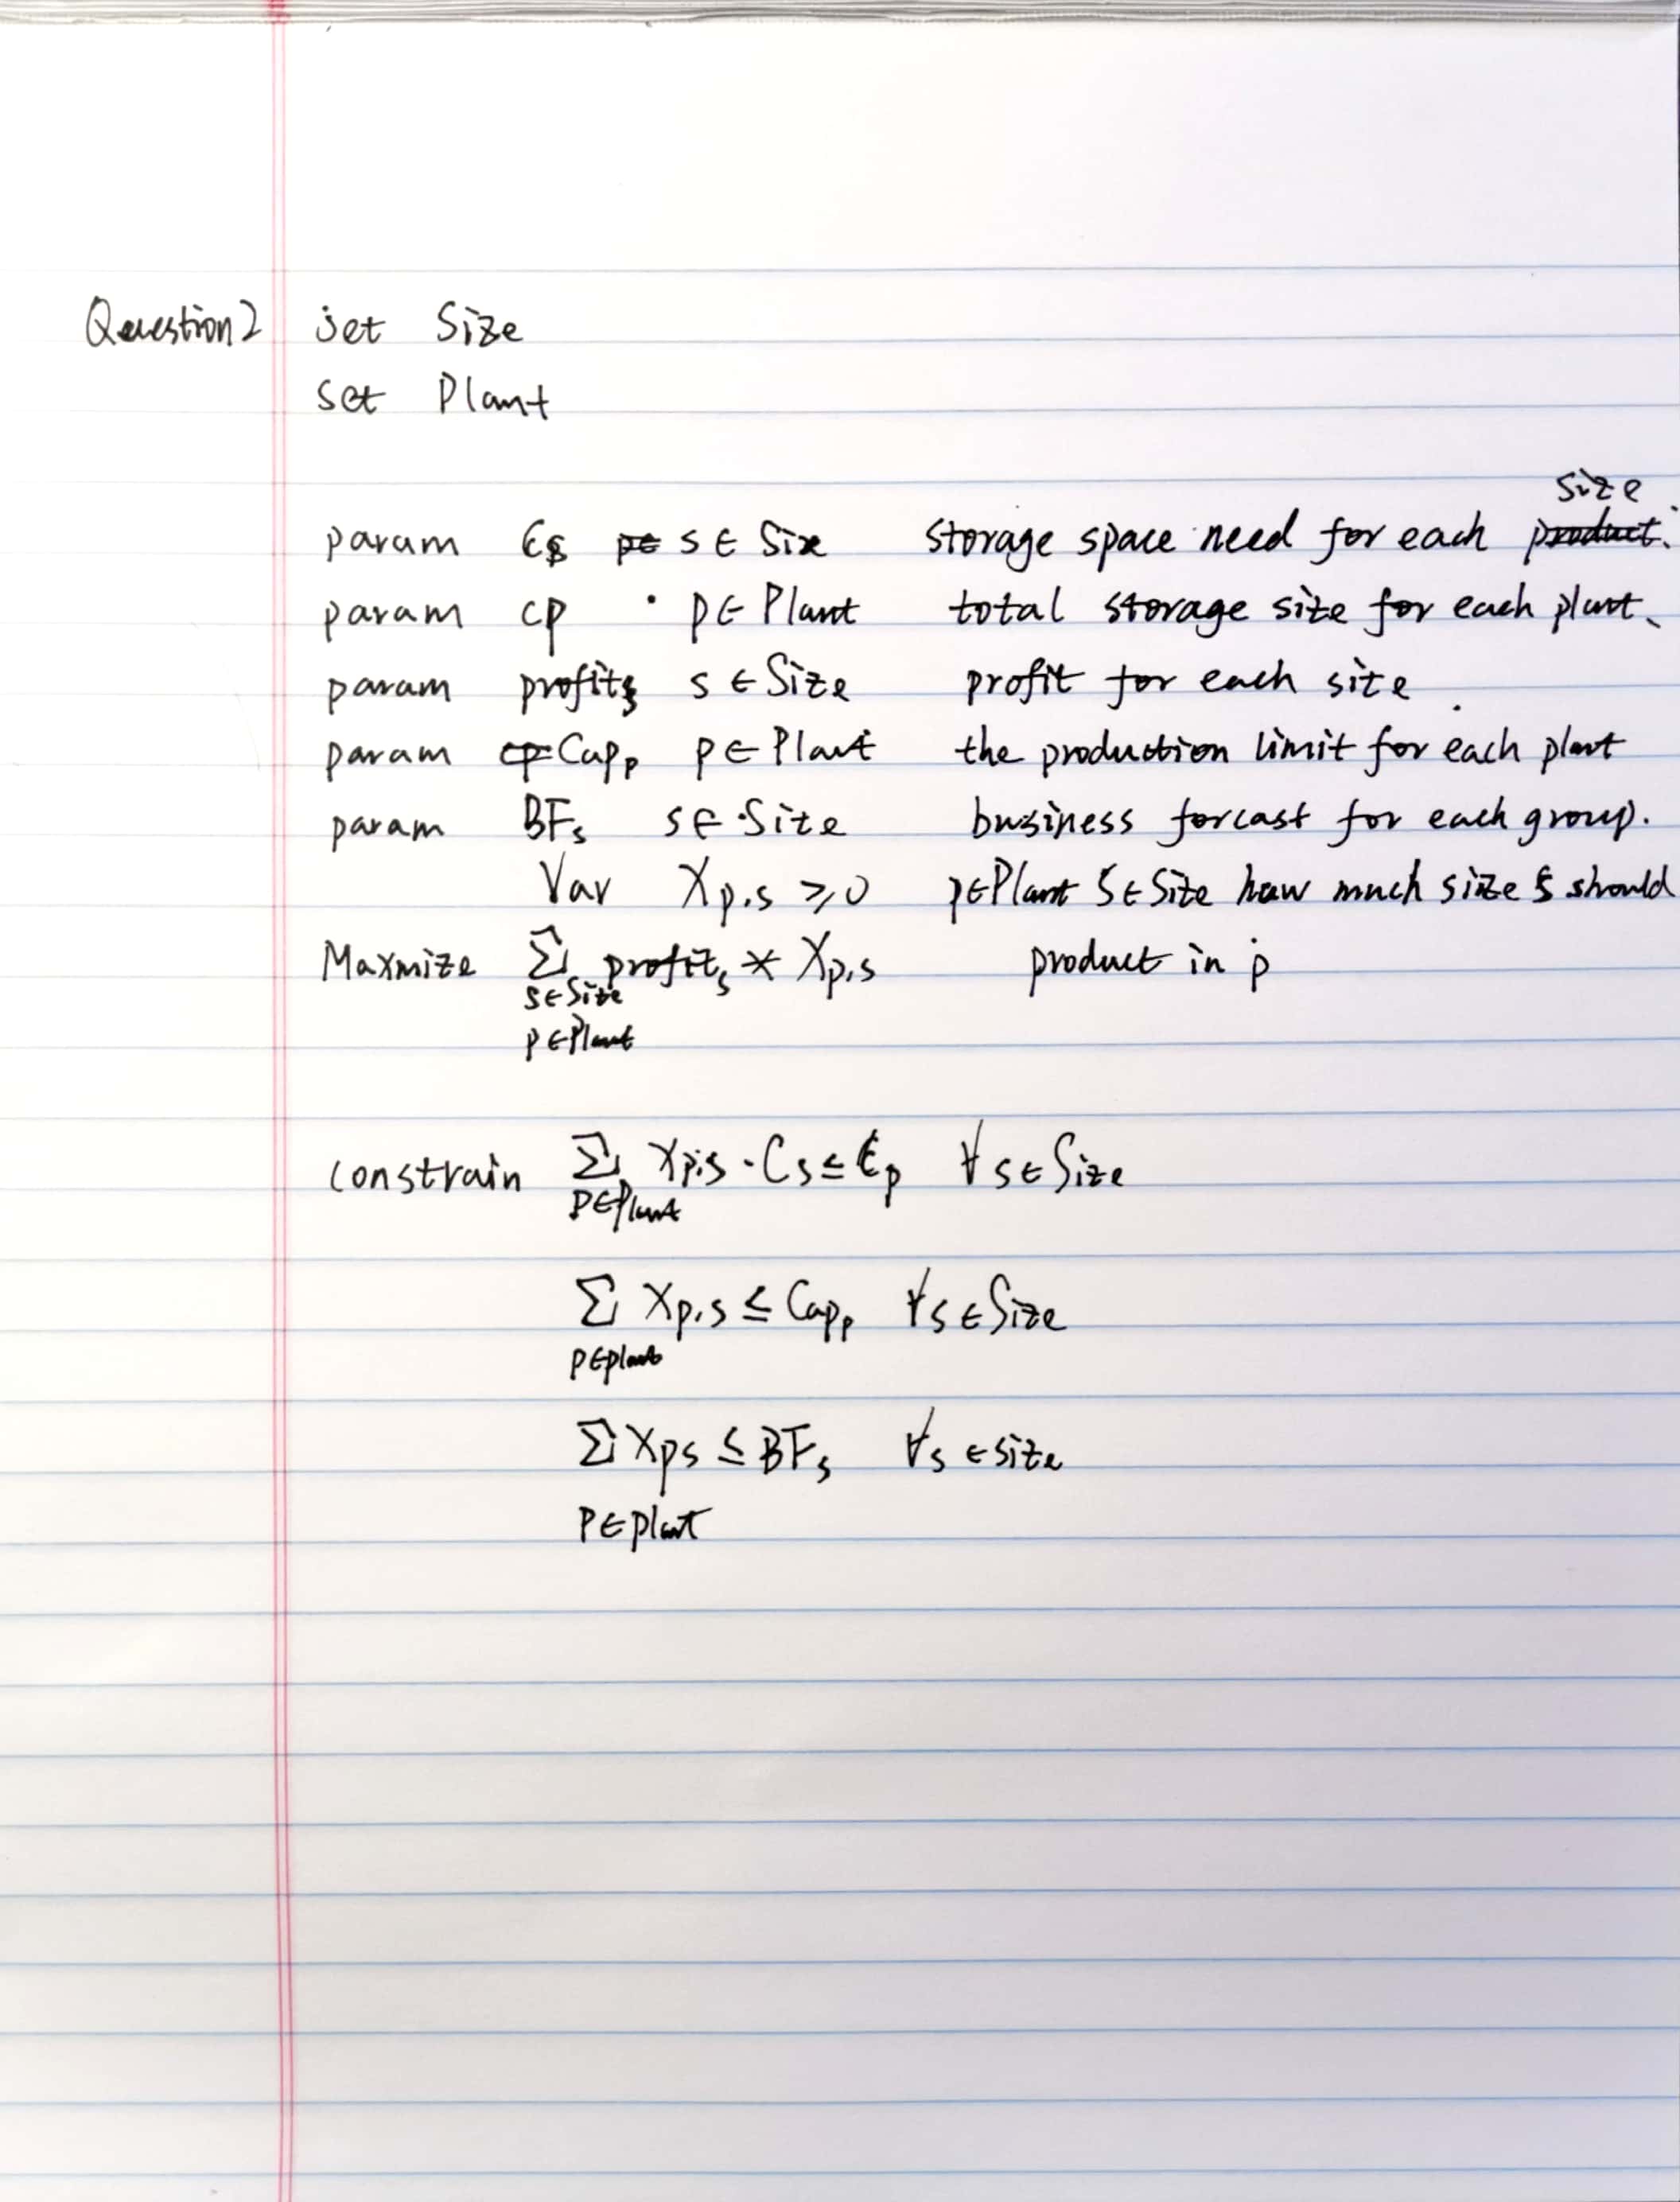 Question2 set Size
set Plant
size
param Cs s ∈ Size storage space need for each product.
param cp p ∈ Plant total storage size for each plant.
param profits s ∈ Size profit for each size.
param cp Capp p ∈ Plant the production limit for each plant
param BFs s ∈ Size business forcast for each group.
Var Xp,s ⩾ 0 p∈Plant s∈Size how much size s should
Maxmize Σ profits * Xp,s product in p
s∈Size
p∈Plant
constrain Σ Xp,s · Cs ≤ Cp ∀ s∈Size
p∈Plant
Σ Xp,s ≤ Capp ∀s∈Size
p∈plant
Σ Xps ≤ BFs ∀s ∈ size
p∈plant